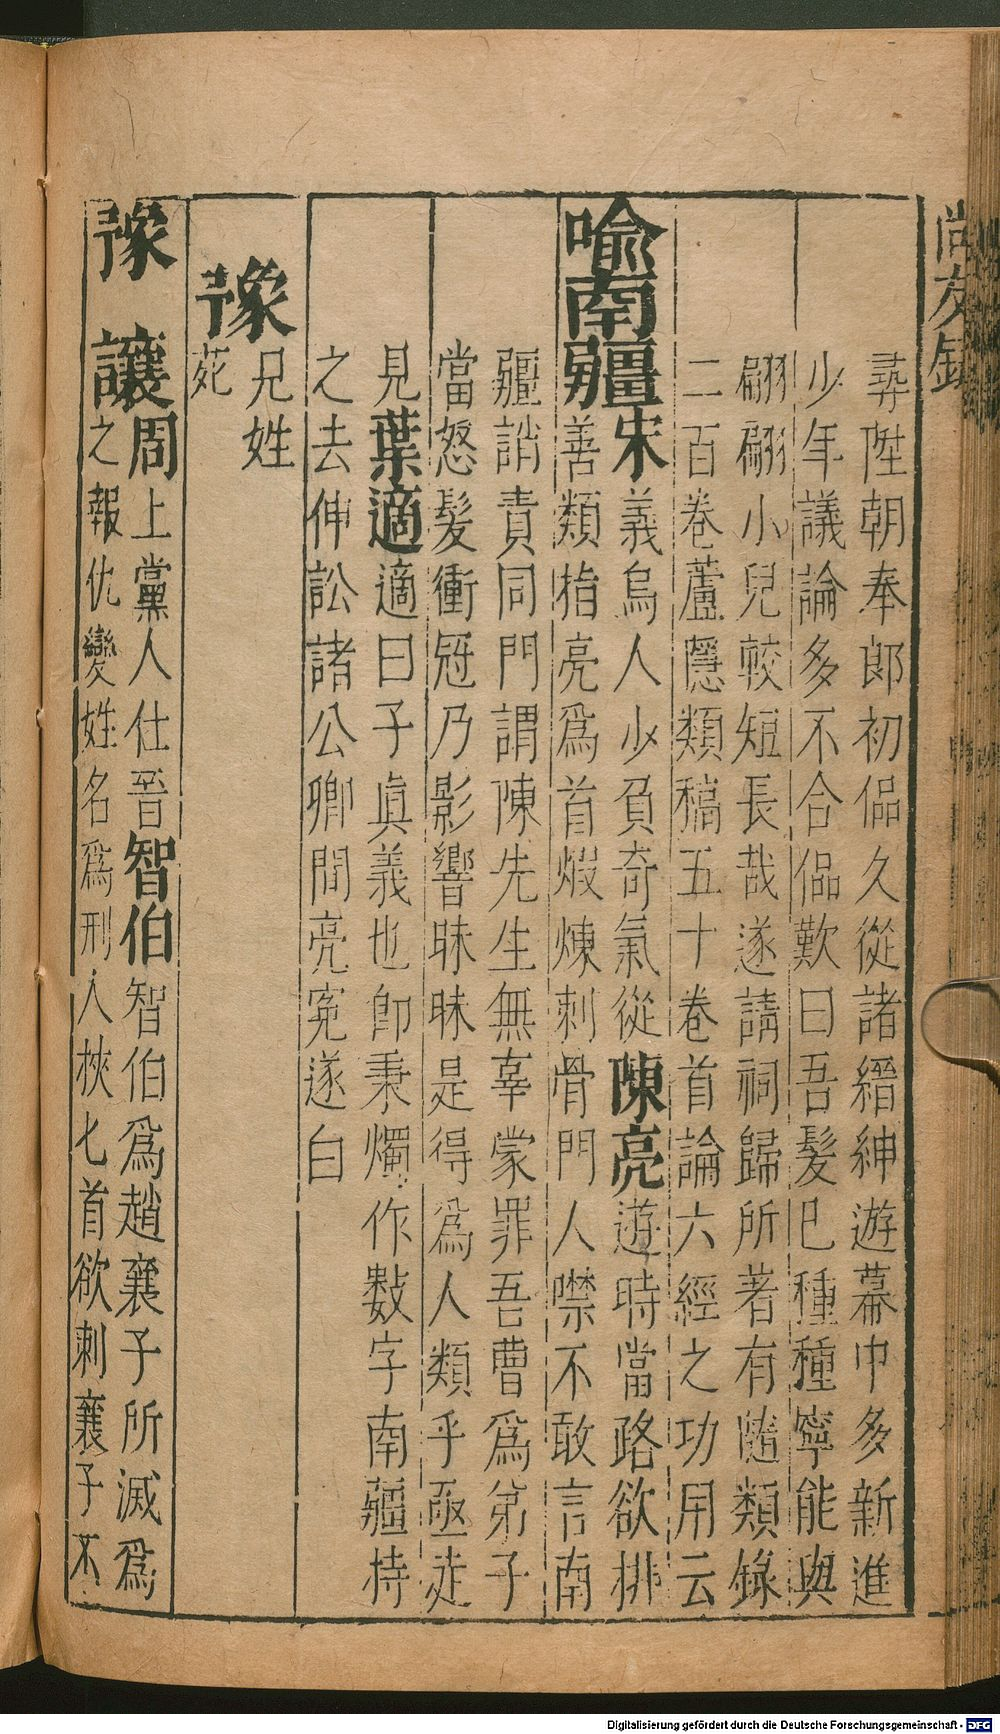 尚友錄
彛陞朝奉郎初侣久從諸縉紳遊幕中多新進
少年議論多不合侣歎曰吾髮已種種寧能與
翩翩小兒較短長哉遂請祠歸所著有隨類錄
二百卷蘆隱類稿五十卷首論六經之功用云
喩南彊宋義烏人少負奇氣從陳亮遊時當路欲排
善類指亮爲首煅煉刺骨門人噤不敢言南
彊誚責同門謂陳先生無辜蒙罪吾曹爲弟子
當怒髮衝冠乃影響昧昧是得爲人類乎亟走
見葉適適曰子眞義也卽秉燭作數字南彊持
之去伸訟諸公卿間亮寃遂白
豫
兄姓
苑
豫讓周上黨人仕晉智伯智伯爲趙襄子所滅爲
之報仇變姓名爲刑人挾匕首欲刺襄子不
Digitalisierung gefördert durch die Deutsche Forschungsgemeinschaft - DFG